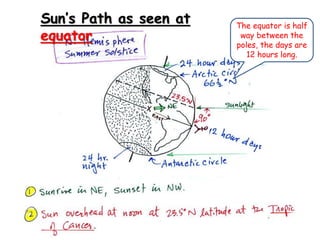 Sun's Path as seen at
equator
The equator is half
way between the
poles, the days are
12 hours long.
N. Hemisphere
Summer Solstice
24. hour days
Arctic Circ
66½°N
23.5°N
NE
sunlight
90°
12 hour days
24 hr.
night
Antarctic circle
① Sunrise in NE, Sunset in NW.
② Sun overhead at noon at 23.5°N latitude at the Tropic
of Cancer.